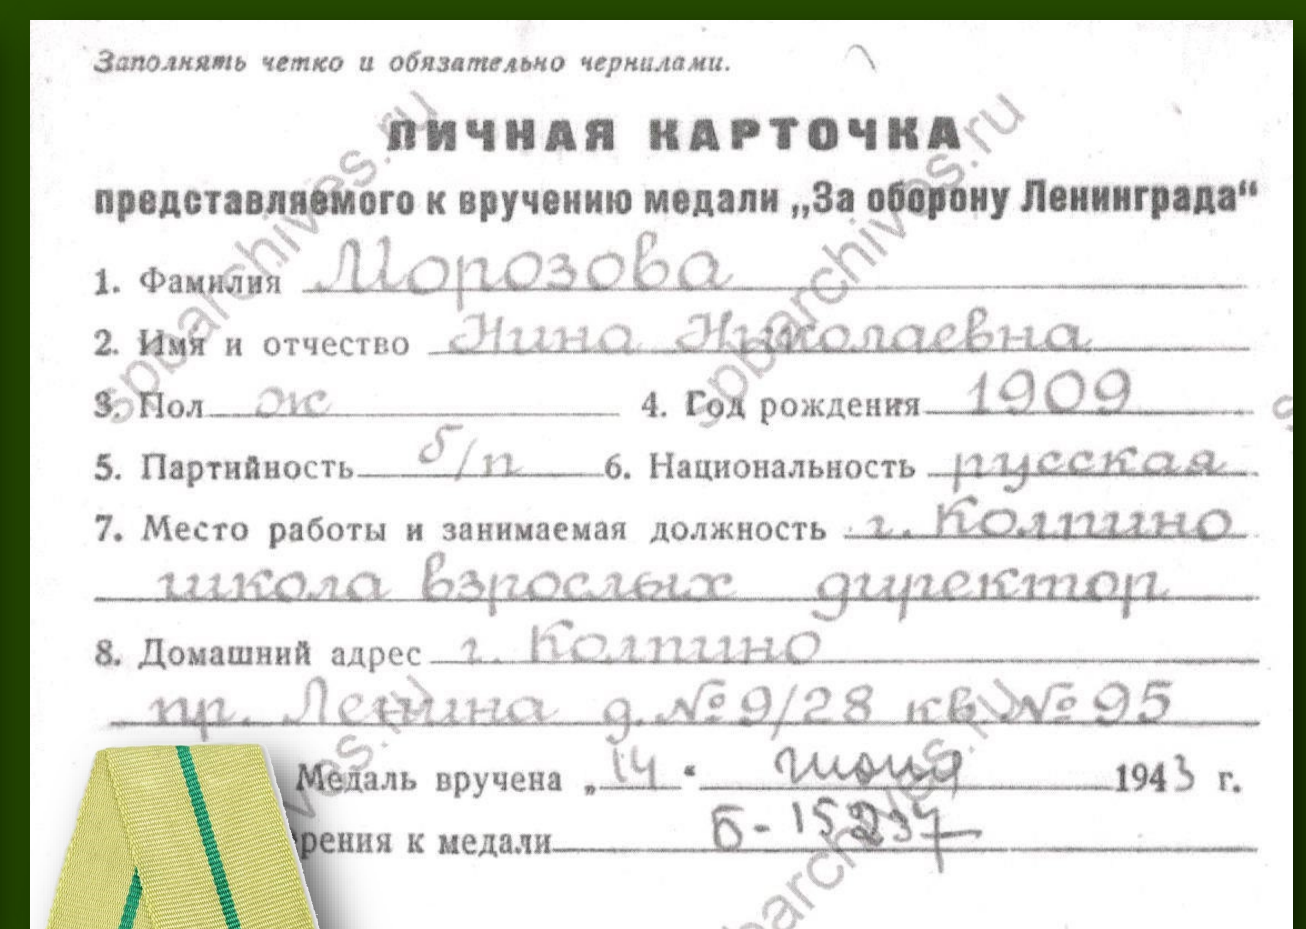 Заполнять четко и обязательно чернилами.
ЛИЧНАЯ КАРТОЧКА
представляемого к вручению медали „За оборону Ленинграда“
1. Фамилия Морозова
2. Имя и отчество Нина Николаевна
3. Пол ж 4. Год рождения 1909
5. Партийность б/п 6. Национальность русская
7. Место работы и занимаемая должность г. Колпино
школа взрослых директор
8. Домашний адрес г. Колпино
пр. Ленина д. № 9/28 кв. № 95
Медаль вручена „14“ июня 1943 г.
рения к медали Б-15237
spbarchives.ru
spbarchives.ru